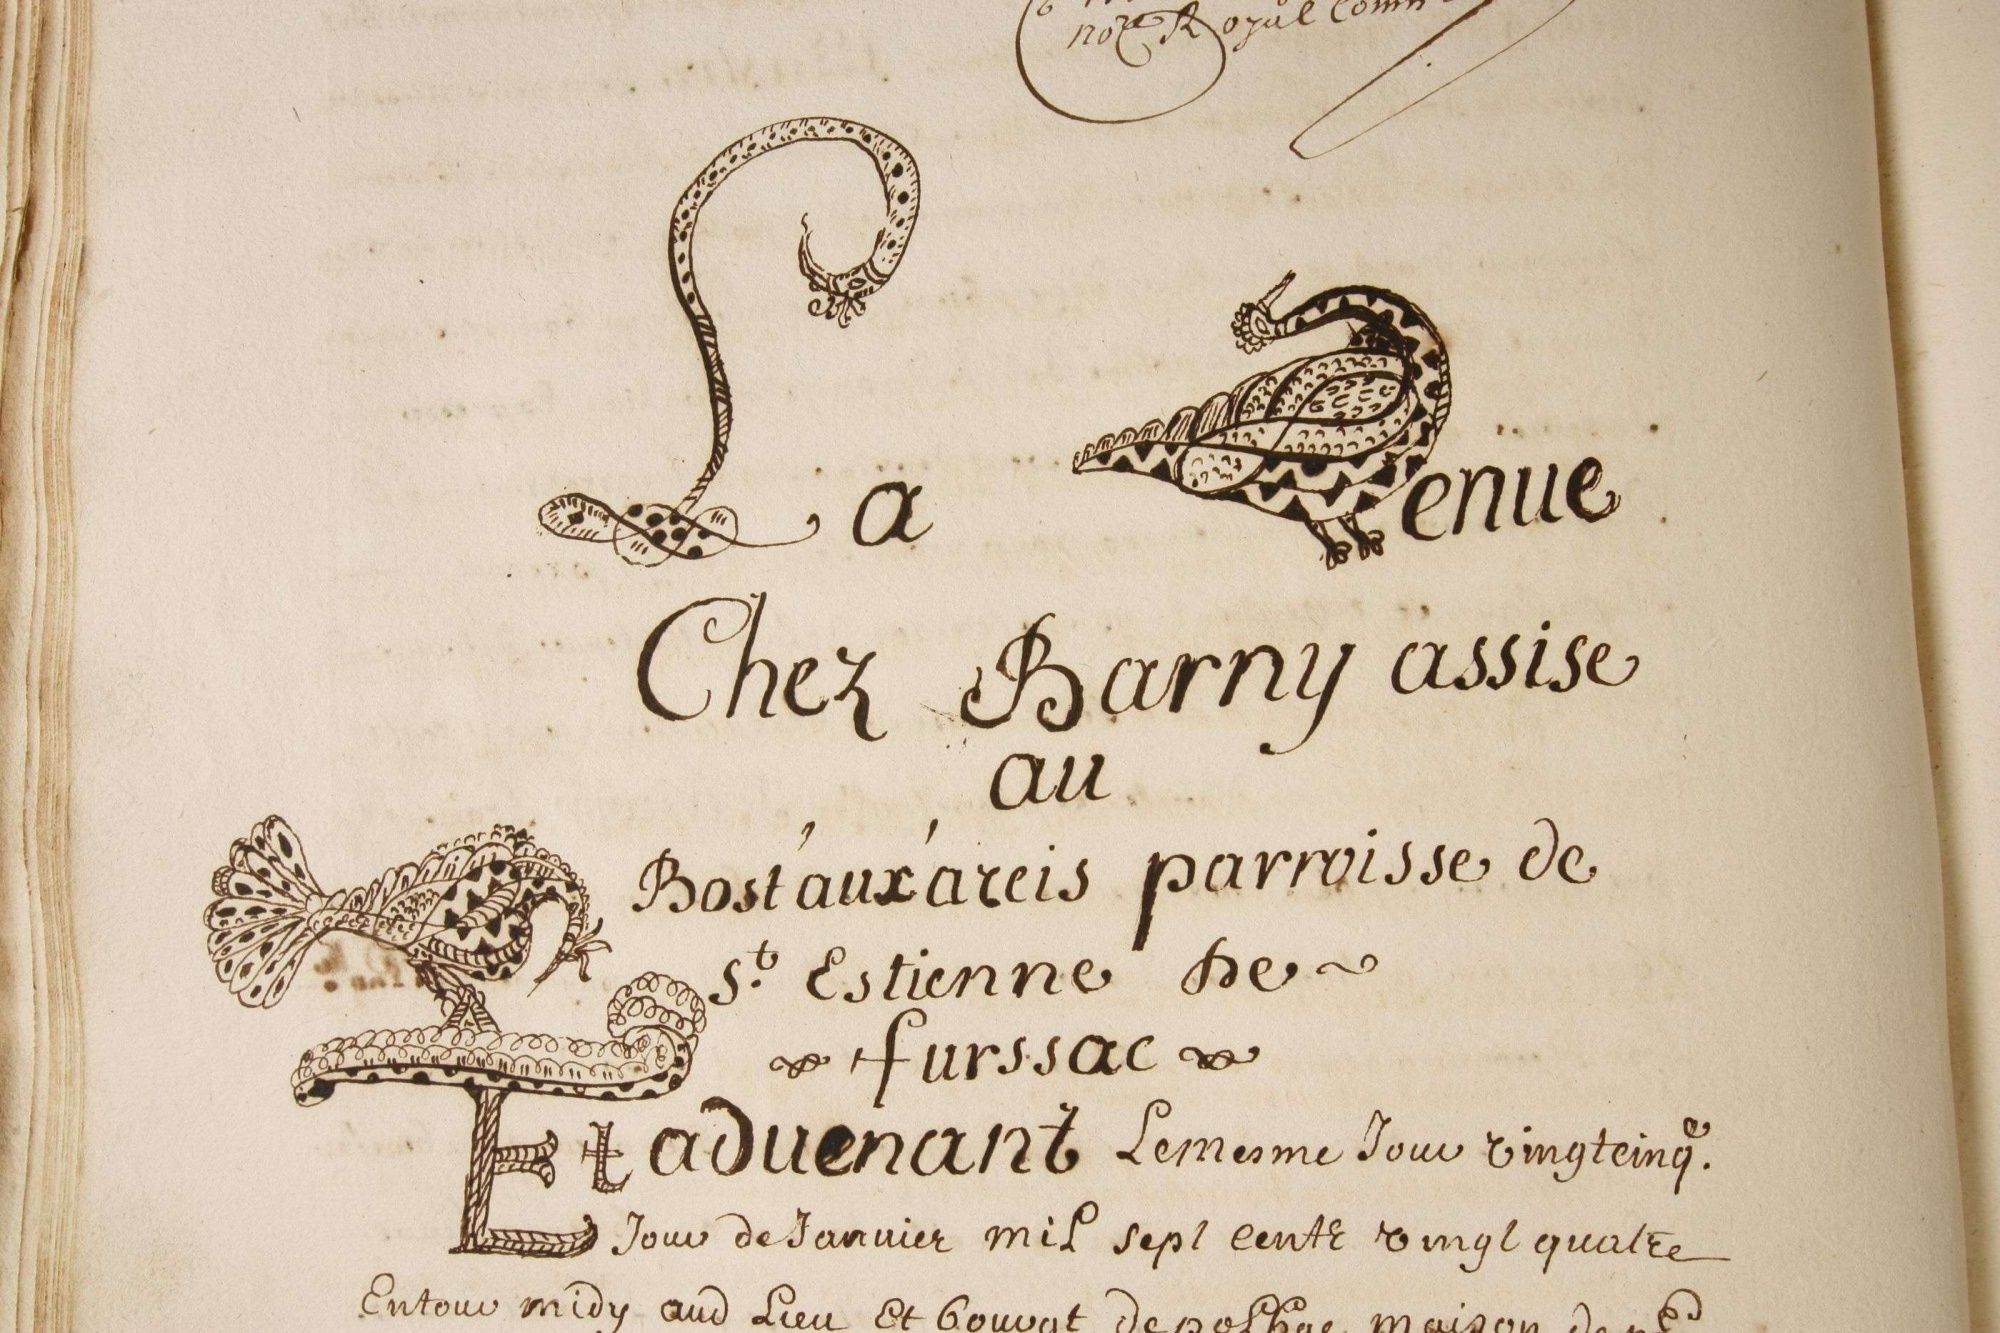 not.e Royal Comm
La Tenue
Chez Barny assise
au
Bost'aux'areis parroisse de
S.t Estienne de
furssac
Et aduenant Lemesme Jour vingtcinq.e
Jour de Januier mil sept cents vingt quatre
Entour midy aud Lieu Et bourgt de maison de